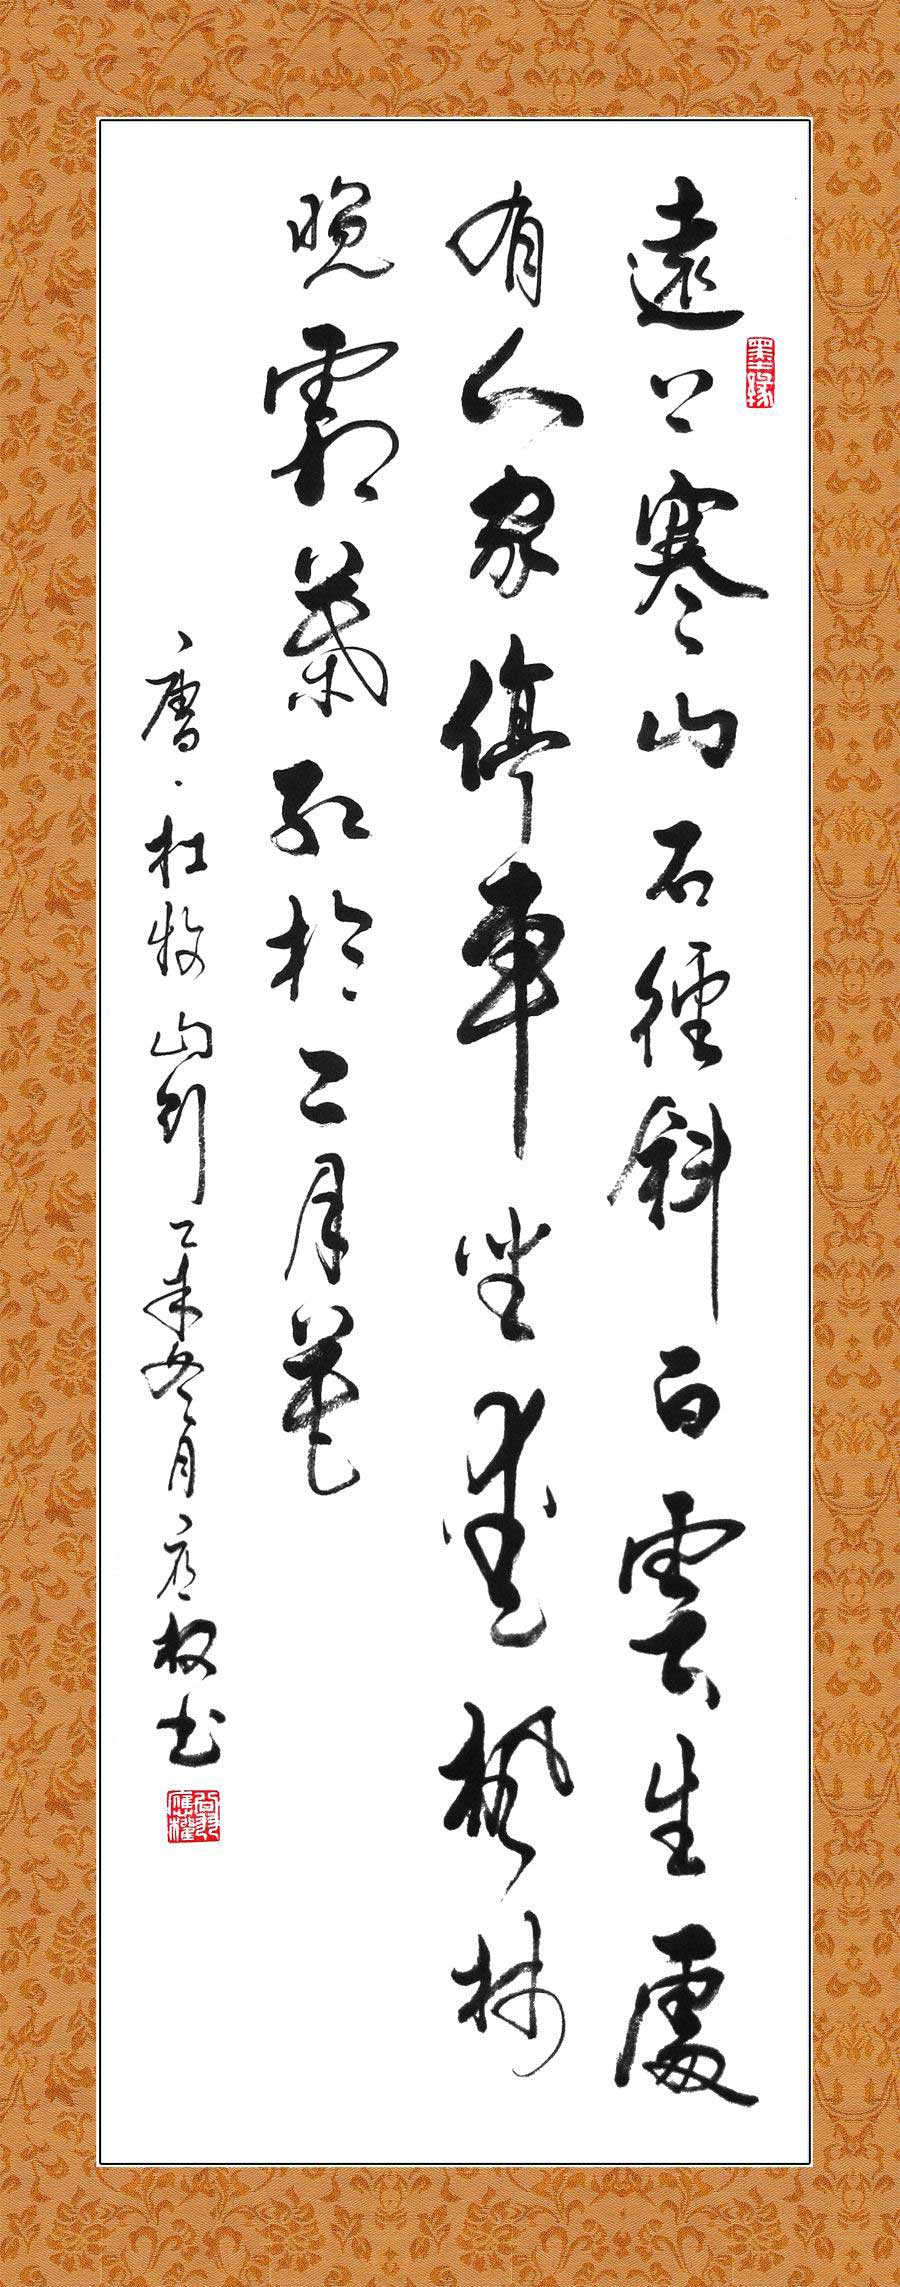 墨緣
遠上寒山石徑斜白雲生處
有人家停車坐愛楓林
晚霜葉紅於二月花
唐·杜牧山行乙未冬月应权书